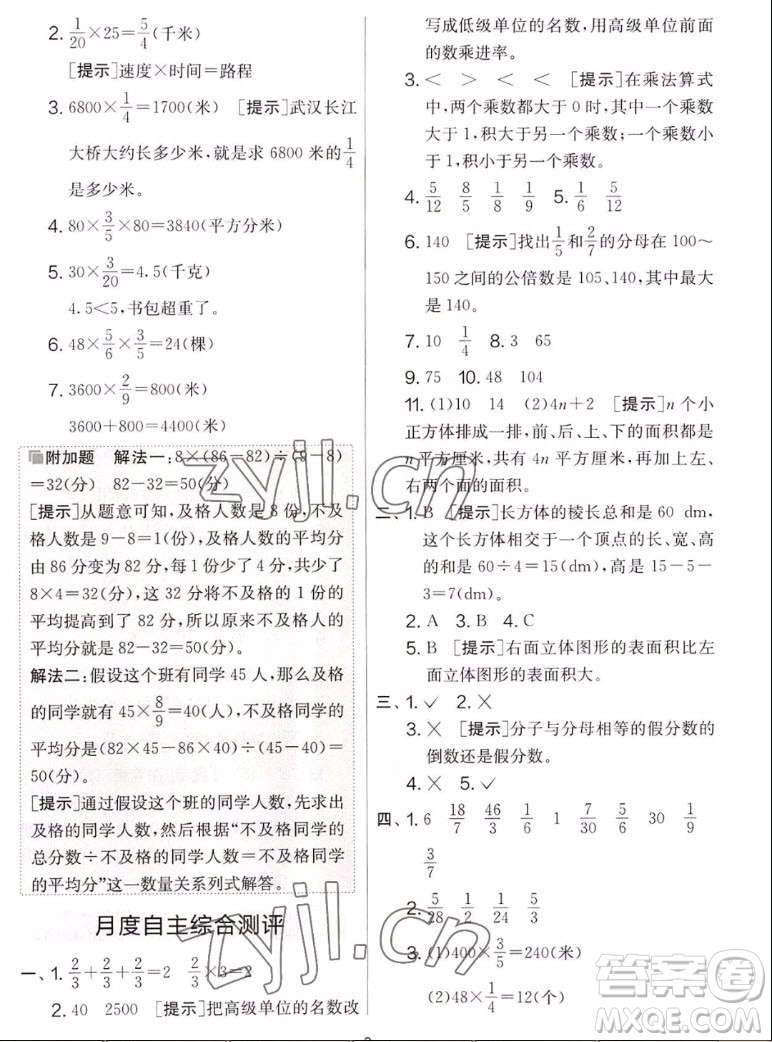 2. 1/20×25=5/4(千米)
[提示]速度×时间=路程
3. 6800×1/4=1700(米) [提示]武汉长江
大桥大约长多少米,就是求 6800 米的1/4
是多少米。
4. 80×3/5×80=3840(平方分米)
5. 30×3/20=4.5(千克)
4.5<5,书包超重了。
6. 48×5/6×3/5=24(棵)
7. 3600×2/9=800(米)
3600+800=4400(米)
附加题 解法一:8×(86-82)÷(9-8)
=32(分) 82-32=50(分)
[提示]从题意可知,及格人数是 8 份,不及
格人数是 9-8=1(份),及格人数的平均分
由 86 分变为 82 分,每 1 份少了 4 分,共少了
8×4=32(分),这 32 分将不及格的 1 份的
平均提高到了 82 分,所以原来不及格人的
平均分就是 82-32=50(分)。
解法二:假设这个班有同学 45 人,那么及格
的同学就有 45×8/9=40(人),不及格同学的
平均分是(82×45-86×40)÷(45-40)=
50(分)。
[提示]通过假设这个班的同学人数,先求出
及格的同学人数,然后根据“不及格同学的
总分数÷不及格同学的人数=不及格同学
的平均分”这一数量关系列式解答。
月度自主综合测评
一、1. 2/3+2/3+2/3=2 2/3×3=2
2. 40 2500 [提示]把高级单位的名数改
写成低级单位的名数,用高级单位前面
的数乘进率。
3. < > < < [提示]在乘法算式
中,两个乘数都大于 0 时,其中一个乘数
大于 1,积大于另一个乘数;一个乘数小
于 1,积小于另一个乘数。
4. 5/12 8/5 1/8 1/9 5. 1/6 5/12
6. 140 [提示]找出1/5和2/7的分母在 100~
150 之间的公倍数是 105、140,其中最大
是 140。
7. 10 1/4 8. 3 65
9. 75 10. 48 104
11. (1)10 14 (2)4n+2 [提示]n 个小
正方体排成一排,前、后、上、下的面积都是
n 平方厘米,共有 4n 平方厘米,再加上左、
右两个面的面积。
二、1. B [提示]长方体的棱长总和是 60 dm,
这个长方体相交于一个顶点的长、宽、高
的和是 60÷4=15(dm),高是 15-5-
7=3(dm)。
2. A 3. B 4. C
5. B [提示]右面立体图形的表面积比左
面立体图形的表面积大。
三、1. ✓ 2. ×
3. × [提示]分子与分母相等的假分数的
倒数还是假分数。
4. × 5. ✓
四、1. 6 18/7 46/3 1/6 1 7/30 5/6 30 1/9
3/7
2. 5/28 1/2 1/24 5/3
3. (1)400×3/5=240(米)
(2)48×1/4=12(个)
zyjl.cn
zyjl.cn
答案圈
MXQE.COM